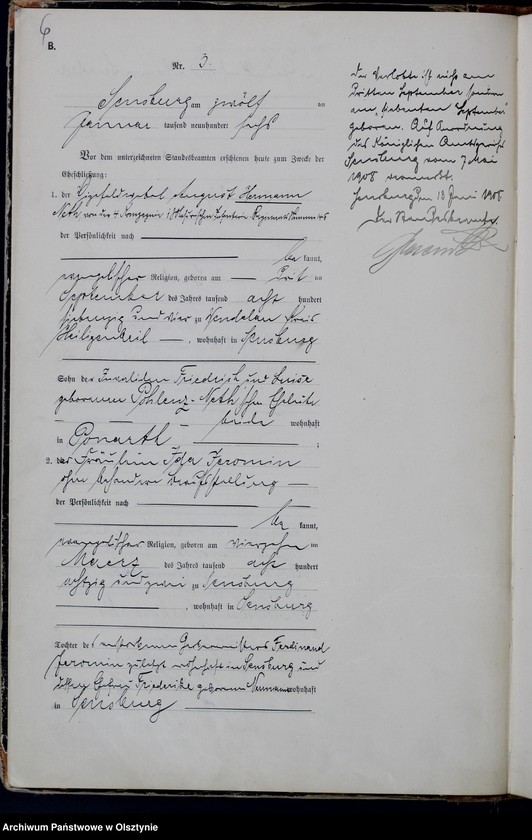 6
B.
Nr. 3.
Sensburg am zwölften
Januar tausend neunhundert sechs
Vor dem unterzeichneten Standesbeamten erschienen heute zum Zwecke der
Eheschließung:
1. der Vizefeldwebel August Hermann
Neth von der 4. Kompagnie Infanterie Regiments
der Persönlichkeit nach
bekannt,
evangelischer Religion, geboren am dritten
September des Jahres tausend acht hundert
siebenzig und vier zu Kreis
Heiligenbeil, wohnhaft in Sensburg
Sohn des Invaliden Friedrich und Luise
geborenen Pohlenz-Neth'schen Eheleute
beide wohnhaft
in Ponarth;
2. das Fräulein Ida Jeromin
ohne besondere Berufsstellung
der Persönlichkeit nach
bekannt,
evangelischer Religion, geboren am vierzehnten
Maerz des Jahres tausend acht hundert
achtzig und zwei zu Sensburg
, wohnhaft in Sensburg
Tochter des verstorbenen Ferdinand
Jeromin zuletzt wohnhaft in Sensburg und
Friederike geborenen Neumann wohnhaft
in Sensburg
Der Verlobte ist nicht am
dritten September sondern
am siebenten September
geboren. Auf Anordnung
des Königlichen Amtsgerichts
Sensburg vom 7. Mai
1908 vermerkt.
Sensburg, den 13 Juni 1908
Der Standesbeamte.
Archiwum Państwowe w Olsztynie